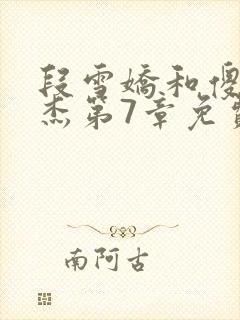 段雪娇和傻
杰第7章免费
南阿古